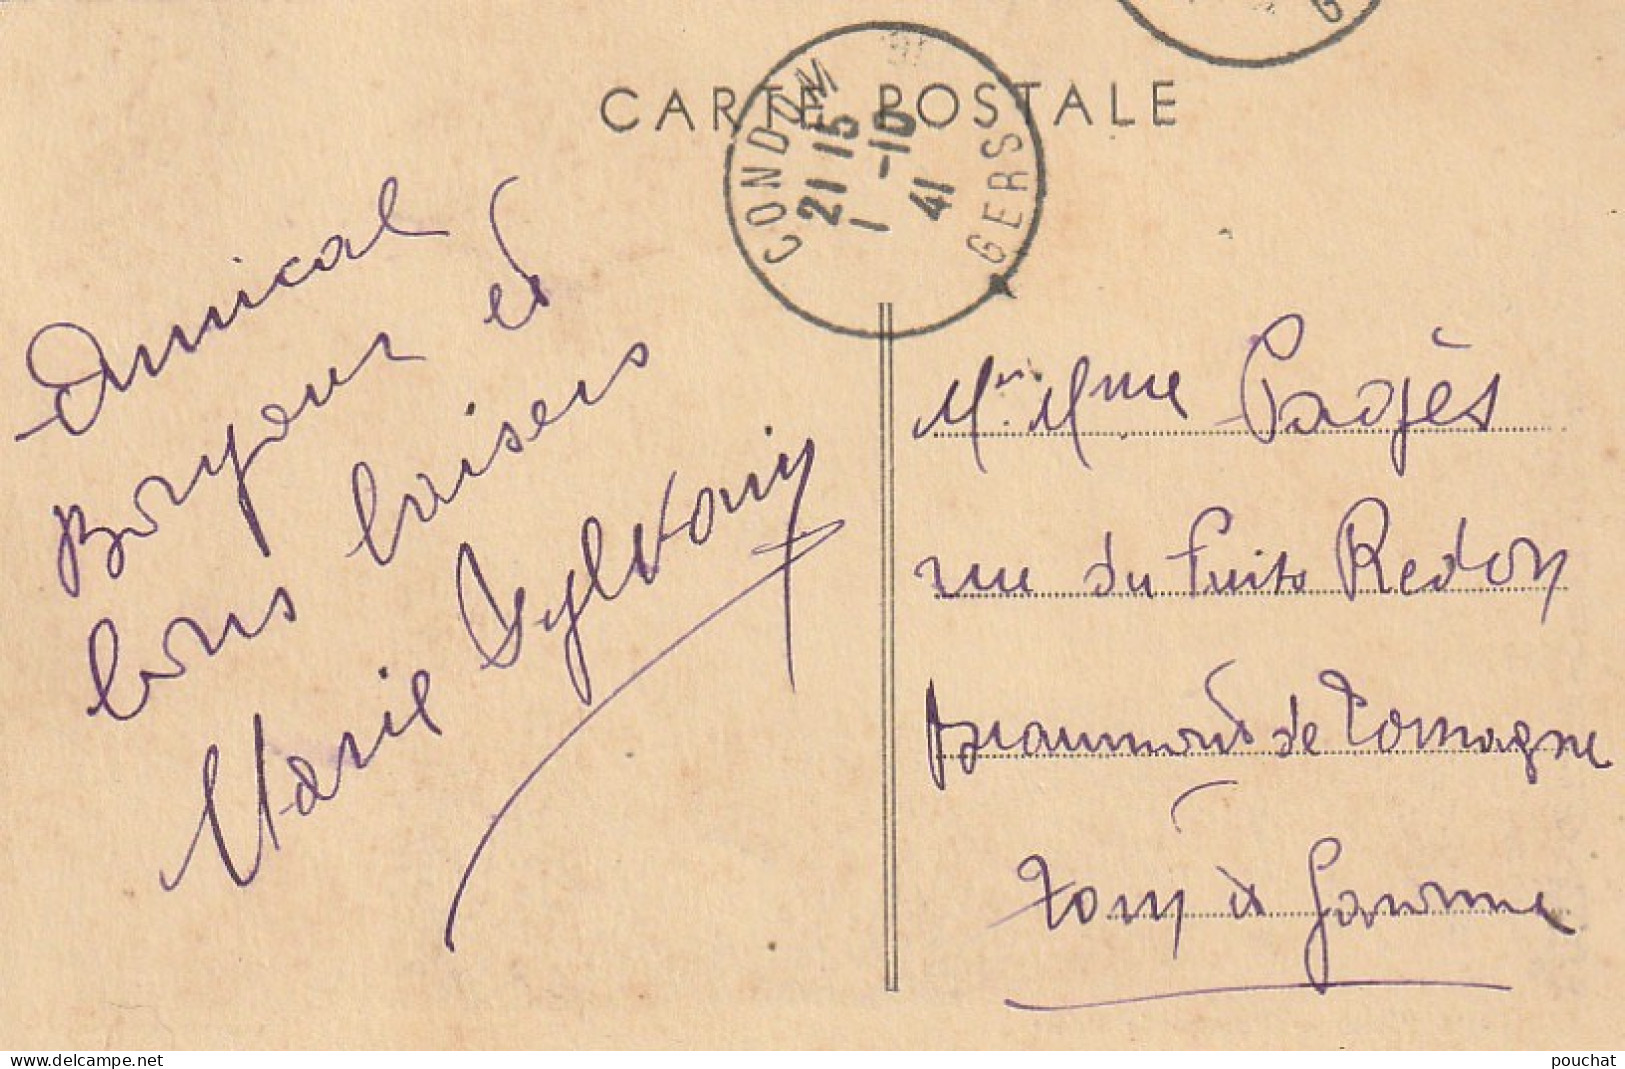 CARTE POSTALE
CONDOM
21 15
1 -10
41
GERS
G
Amical
Bonjour et
bons baisers
Marie Sylvain
Mr. Mme Pagès
rue du Puits Redon
Beaumont de Lomagne
Tarn et Garonne
www.delcampe.net
pouchat